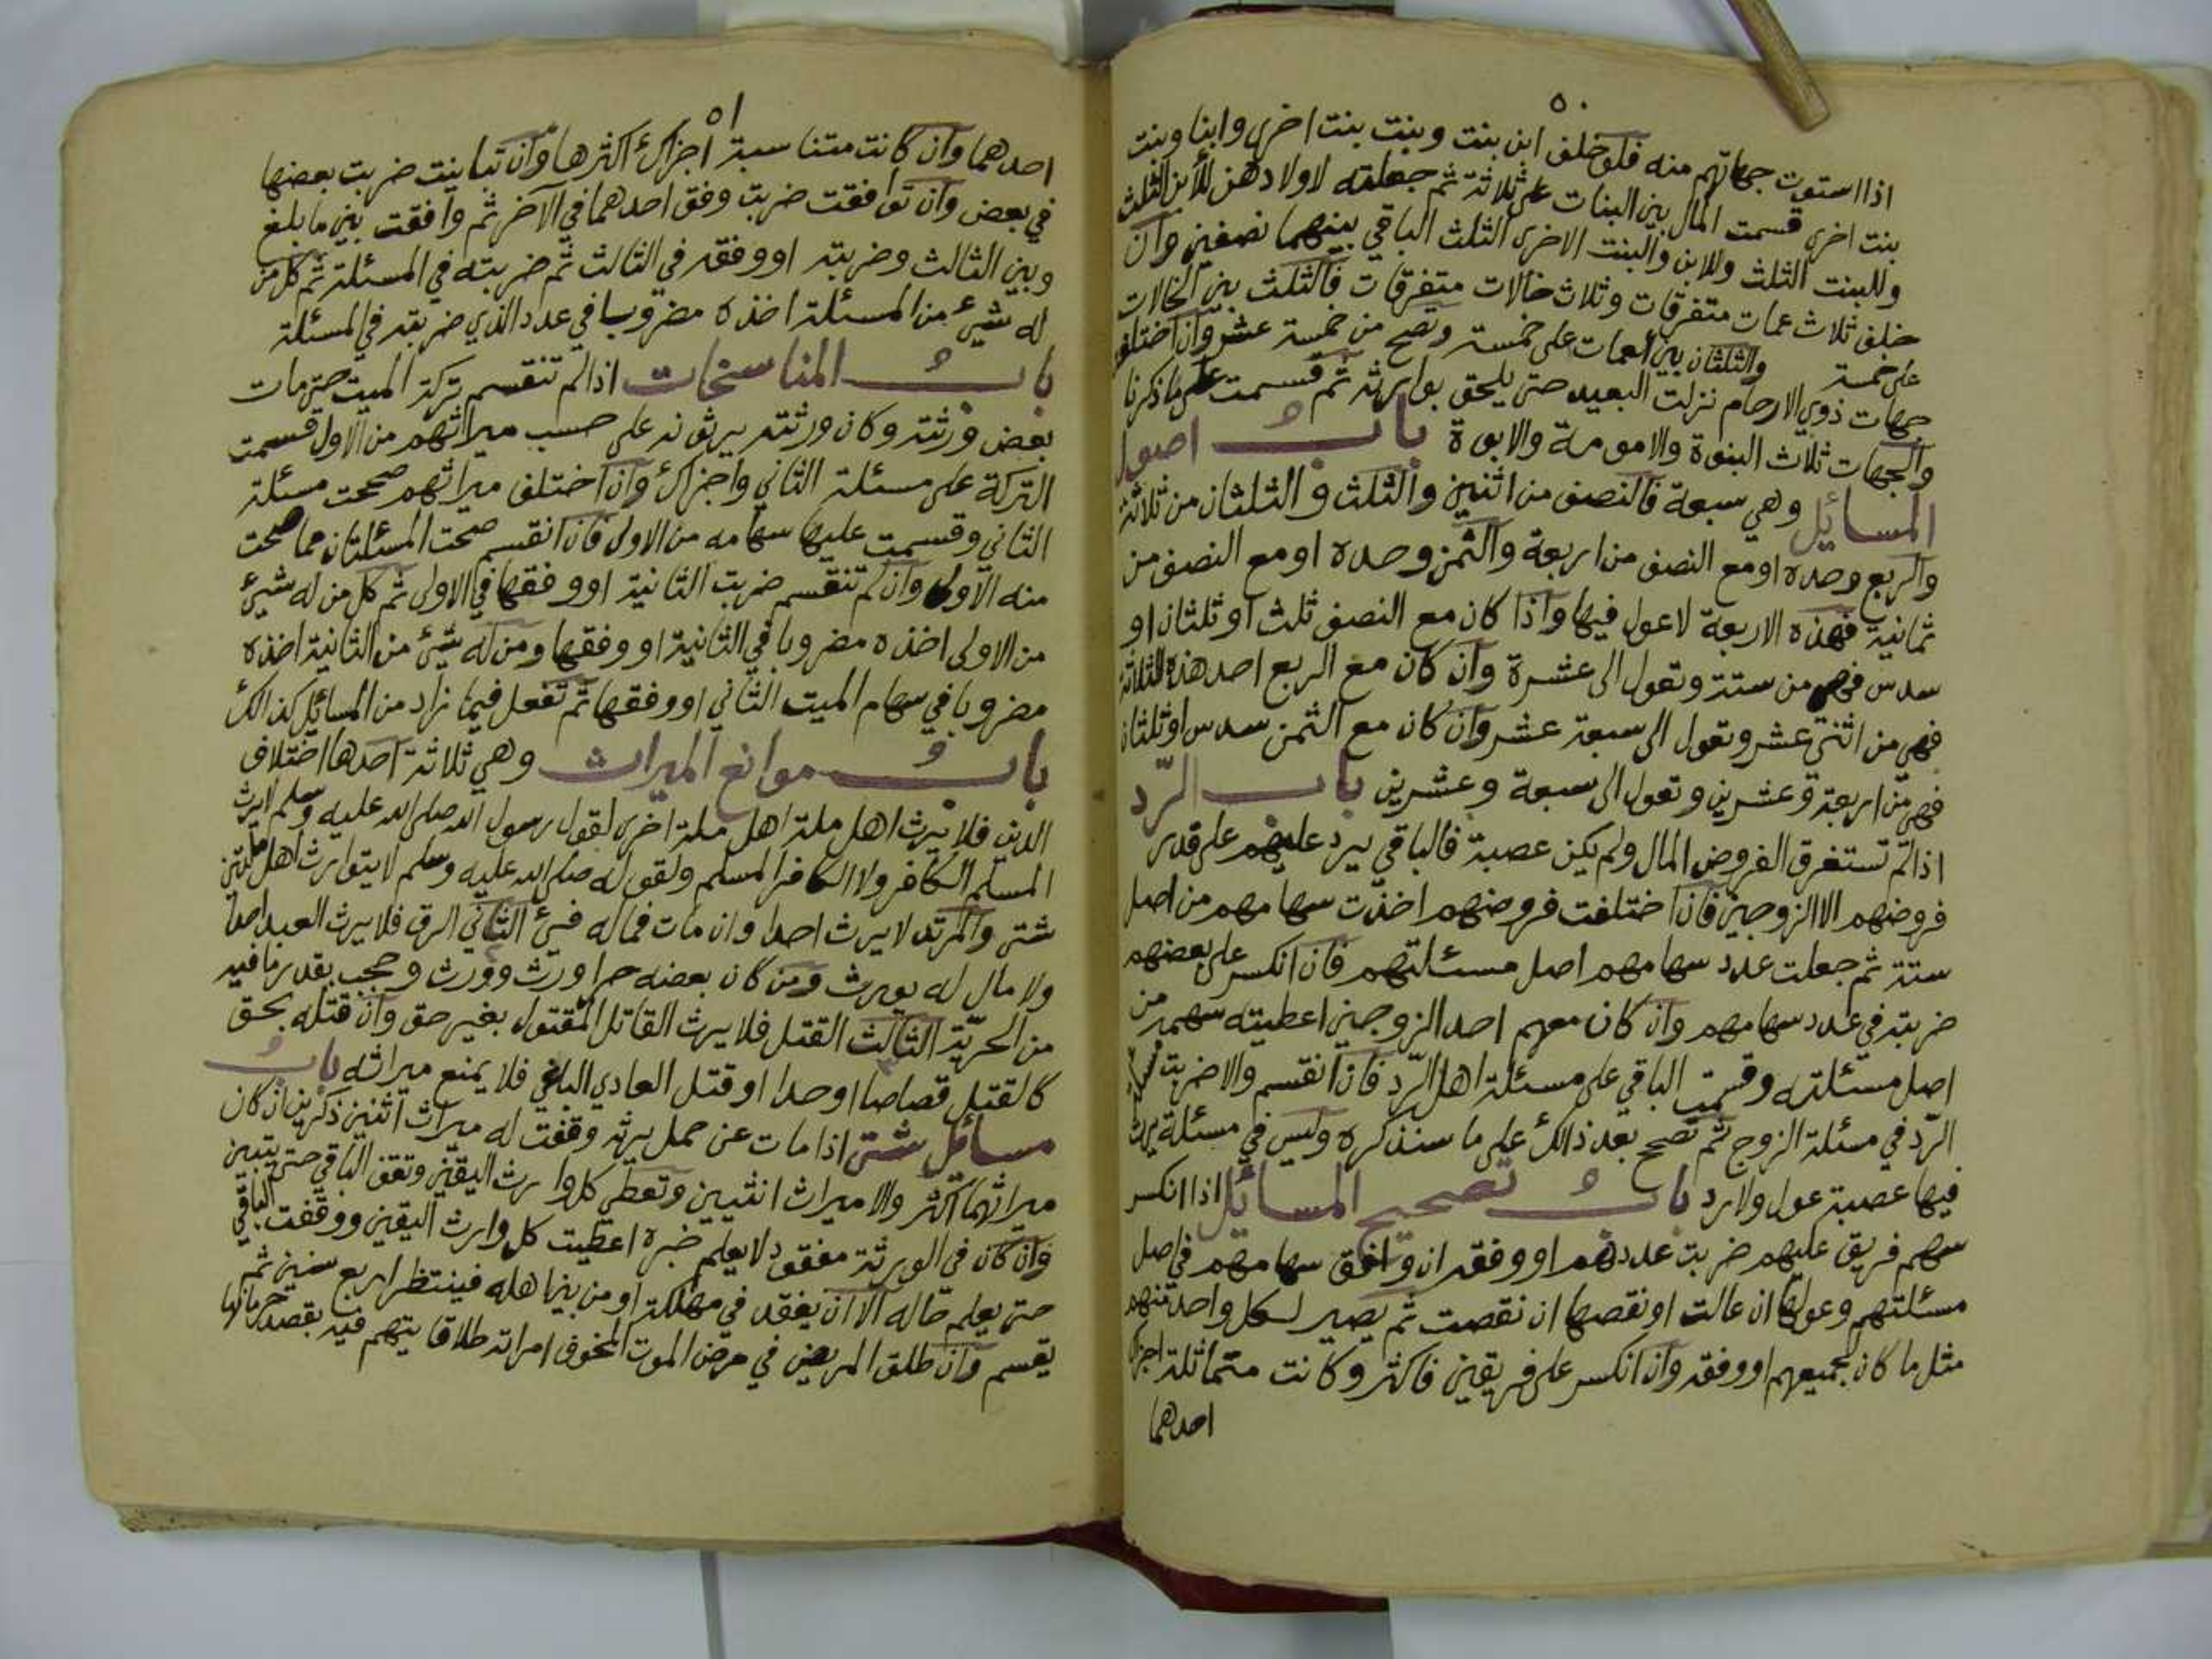 ٥٠
اذا استوت جهاتهم منه فلو خلف ابن بنت وبنت بنت اخرى وابنا وبنت
بنت اخرى قسمت المال بين البنات على ثلاثة ثم جعلته لاولادهن للأبن الثلث
وللبنت الثلث وللابن والبنت الاخرى الثلث الباقي بينهما نصفين وان
خلف ثلاث عمات متفرقات وثلاث خالات متفرقات فالثلث بين الخالات
على خمسة والثلثان بين العمات على خمسة وتصح من خمسة عشر وان اختلف
جهات ذوي الارحام نزلت البعيد حتى يلحق بوارثه ثم قسمت على ما ذكرنا
والجهات ثلاث البنوة والامومة والابوة باب اصول
المسائل وهي سبعة فالنصف من اثنين والثلث والثلثان من ثلاثة
والربع وحده او مع النصف من اربعة والثمن وحده او مع النصف من
ثمانية فهذه الاربعة لاعول فيها واذا كان مع النصف ثلث او ثلثان او
سدس فهي من ستة وتعول الى عشرة وان كان مع الربع احد هذه الثلاثة
فهي من اثني عشر وتعول الى سبعة عشر وان كان مع الثمن سدس او ثلثان
فهي من اربعة وعشرين وتعول الى سبعة وعشرين باب الرّد
اذا لم تستغرق الفروض المال ولم يكن عصبة فالباقي يرد عليهم على قدر
فروضهم الا الزوجين فان اختلفت فروضهم اخذت سهامهم من اصل
ستة ثم جعلت عدد سهامهم اصل مسئلتهم فان انكسر على بعضهم
ضربته في عدد سهامهم وان كان معهم احد الزوجين اعطيته سهمه من
اصل مسئلته وقسمت الباقي على مسئلة اهل الرّد فان انقسم والا ضربت
الرّد في مسئلة الزوج ثم تصحح بعد ذالك على ما سنذكره وليس في مسئلة يرث
فيها عصبة عول ولا رد باب تصحيح المسائل اذا انكسر
سهم فريق عليهم ضربت عددهم او وفقه ان وافق سهامهم في اصل
مسئلتهم وعولها ان عالت او نقصها ان نقصت ثم يصير لكل واحد منهم
مثل ما كان لجميعهم او وفقه وان انكسر على فريقين فاكثر وكانت متماثلة اجزاك
احدهما
٥١
احدهما وان كانت متناسبة اجزاك اكثرها وان تباينت ضربت بعضها
في بعض وان توافقت ضربت وفق احدهما في الآخر ثم وافقت بين ما بلغ
وبين الثالث وضربته او وفقه في الثالث ثم ضربته في المسئلة ثم كل من
له شيئ من المسئلة اخذه مضروبا في عدد الذي ضربته في المسئلة
باب المناسخات اذا لم تنقسم تركة الميت حتى مات
بعض ورثته وكان ورثته يرثونه على حسب ميراثهم من الاول قسمت
التركة على مسئلة الثاني واجزاك وان اختلف ميراثهم صححت مسئلة
الثاني وقسمت عليها سهامه من الاولى فان انقسم صحت المسئلتان مما صحت
منه الاولى وان لم تنقسم ضربت الثانية او وفقها في الاولى ثم كل من له شيئ
من الاولى اخذه مضروبا في الثانية او وفقها ومن له شيئ من الثانية اخذه
مضروبا في سهام الميت الثاني او وفقها ثم تفعل فيما زاد من المسائل كذالك
باب موانع الميراث وهي ثلاثة احدها اختلاف
الدين فلا يرث اهل ملة اهل ملة اخرى لقول رسول الله صلى الله عليه وسلم لا يرث
المسلم الكافر ولا الكافر المسلم ولقوله صلى الله عليه وسلم لا يتوارث اهل ملتين
شتى والمرتد لا يرث احدا وان مات فماله فيئ الثاني الرق فلا يرث العبد احدا
ولا مال له يورث ومن كان بعضه حرا ورث وورث وحجب بقدر ما فيه
من الحريّة الثالث القتل فلا يرث القاتل المقتول بغير حق وان قتله بحق
كالقتل قصاصا او حدا او قتل العادي الباغي فلا يمنع ميراثه باب
مسائل شتى اذا مات عن حمل يرثه وقفت له ميراث اثنين ذكرين ان كان
ميراثهما اكثر والا ميراث انثيين وتعطي كل وارث اليقين وتقف الباقي حتى يتبين
وان كان في الورثة مفقود لا يعلم خبره اعطيت كل وارث اليقين ووقفت الباقي
حتى يعلم حاله الا ان يفقد في مهلكة او من بين اهله فينتظر اربع سنين ثم
يقسم وان طلق المريض في مرض الموت المخوف امراته طلاقا يتهم فيه بقصد حرمانها